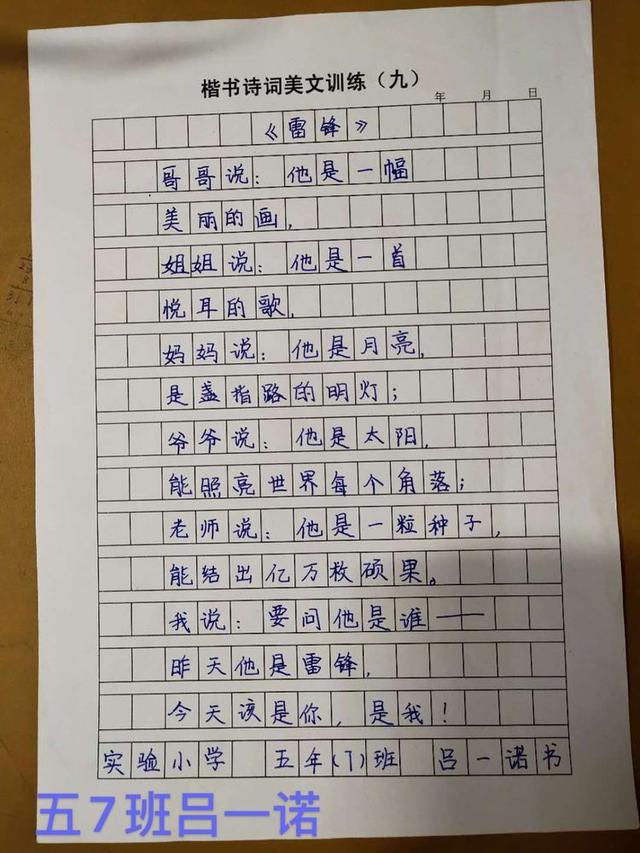 楷书诗词美文训练（九）
年 月 日
《雷锋》
哥哥说：他是一幅
美丽的画，
姐姐说：他是一首
悦耳的歌，
妈妈说：他是月亮，
是盏指路的明灯；
爷爷说：他是太阳，
能照亮世界每个角落；
老师说：他是一粒种子，
能结出亿万枚硕果。
我说：要问他是谁——
昨天他是雷锋，
今天该是你，是我！
实验小学 五年(7)班 吕一诺书
五7班吕一诺